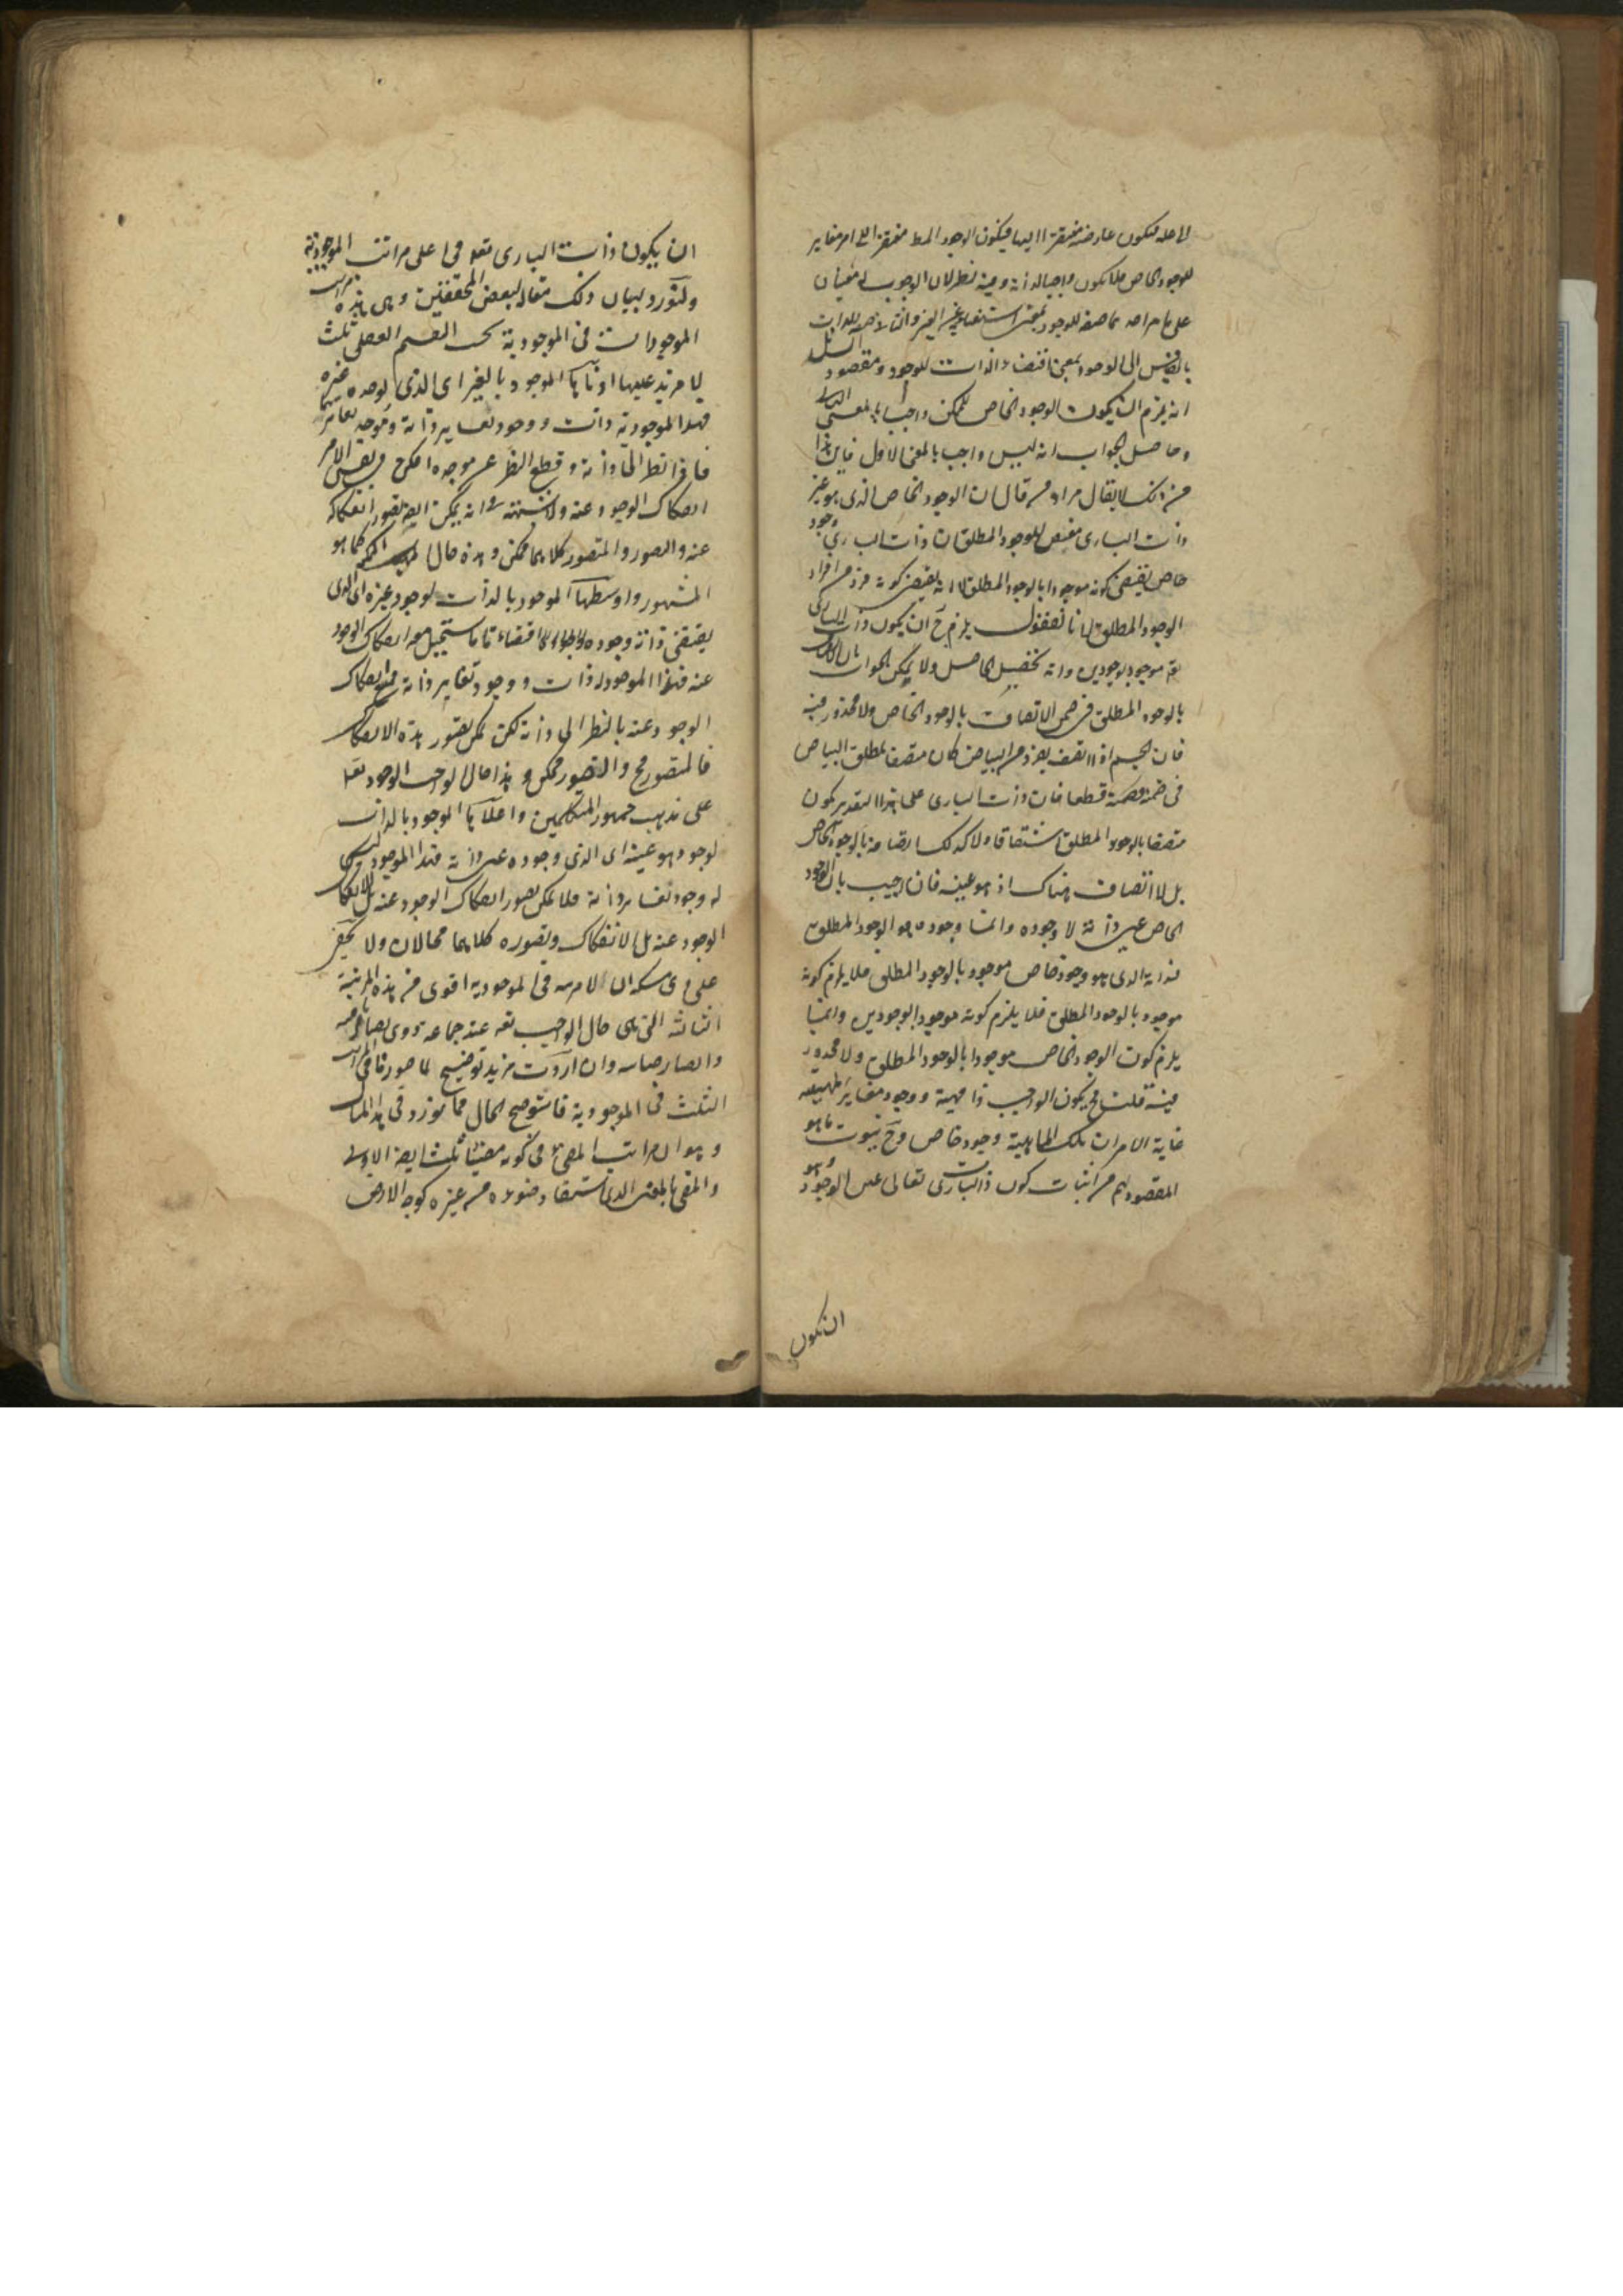 لاحله فيكون عارضه مفتقرة اليها فيكون الوجود المط مفتقرا الى امر مغاير
للوجود الخاص فلا يكون واجبا لذاته وفيه نظر لان الوجوب له معنيان
على ما مر احدهما صفة للوجود بمعنى استغنائه عن الغير والثانى صفة للذات
بالقياس الى الوجود بمعنى اقتضاء الذات للوجود ومقصود
انه يلزم ان يكون الوجود الخاص للممكن واجبا بالمعنى
وحاصل الجواب انه ليس واجبا بالمعنى الاول فاين هذا
من ذلك لا يقال مراد من قال ان الوجود الخاص الذى هو عين
ذات البارى مقتض للوجود المطلق ان ذات البارى وجود
خاص يقتضى كونه موجودا بالوجود المطلق لا انه يقتضى كونه فردا من افراد
الوجود المطلق لانا نقول يلزم ح ان يكون ذات البارى
تع موجودا بوجودين وانه تحصيل الحاصل ولا يمكن الجواب بان
بالوجود المطلق فى ضمن الاتصاف بالوجود الخاص ولا محذور فيه
فان الجسم اذا اتصف بفرد من البياض كان متصفا بمطلق البياض
فى ضمنه قطعا فان ذات البارى على هذا التقدير يكون
متصفا بالوجود المطلق اشتقاقا ولا كذلك اتصافه بالوجود الخاص
بل لا اتصاف هناك اذ هو عينه فان اجيب بان الوجود
الخاص عين ذاته لا وجوده وانما وجوده هو الوجود المطلق
فذاته الذى هو وجود خاص موجود بالوجود المطلق فلا يلزم كونه
موجودا بالوجود المطلق فلا يلزم كونه موجودا بوجودين وانما
يلزم كون الوجود الخاص موجودا بالوجود المطلق ولا محذور
فيه قلت فح يكون الواجب ذا مهية ووجود مغاير لمهيته
غاية الامر ان تلك الماهية وجود خاص وح يفوت ما هو
المقصود لهم من اثبات كون ذات البارى تعالى عين الوجود وهو
ان يكون
ان يكون ذات البارى تعالى فى اعلى مراتب الموجودية
ولنورد لبيان ذلك مقالة لبعض المحققين وهى هذه مراتب
الموجودات فى الموجودية بحسب التقسيم العقلى ثلث
لا مزيد عليها ادناها الموجود بالغير اى الذى يوجده غيره
فهذا الموجود له ذات ووجود يغاير ذاته وموجد يغايرهما
فاذا نظر الى ذاته وقطع النظر عن موجده امكن فى نفس الامر
انفكاك الوجود عنه ولا شبهة فى انه يمكن ايضا تصور انفكاكه
عنه والتصور والمتصور كلاهما ممكن وهذه حال الممكن كما هو
المشهور واوسطها الموجود بالذات لوجود غيره اى الذى
يقتضى ذاته وجوده اقتضاء تاما يستحيل معه انفكاك الوجود
عنه فهذا الموجود له ذات ووجود يغاير ذاته يمتنع انفكاك
الوجود عنه بالنظر الى ذاته لكن يمكن تصور هذه الانفكاك
فالمتصور مح والتصور ممكن وهذا حال الواجب الوجود تعالى
على مذهب جمهور المتكلمين واعلاها الموجود بالذات
لوجود هو عينه اى الذى وجوده عين ذاته فهذا الموجود ليس
له وجود يغاير ذاته فلا يمكن تصور انفكاك الوجود عنه بل انفكاك
الوجود عنه بل الانفكاك وتصوره كلاهما محالان ولا يخفى
على ذى مسكة ان لا مرتبة فى الموجودية اقوى من هذه المرتبة
الثالثة التى هى حال الواجب تع عند جماعة ذوى بصائر
وان اردت مزيد توضيح لما صورناه فى المراتب
الثلث فى الموجودية فاستوضح الحال مما نورد فى هذا المثال
وهو ان مراتب المضى فى كونه مضيئا ثلث ايضا الاولى
والمضى بالغير الذى استفاد ضوءه من غيره كوجه الارض